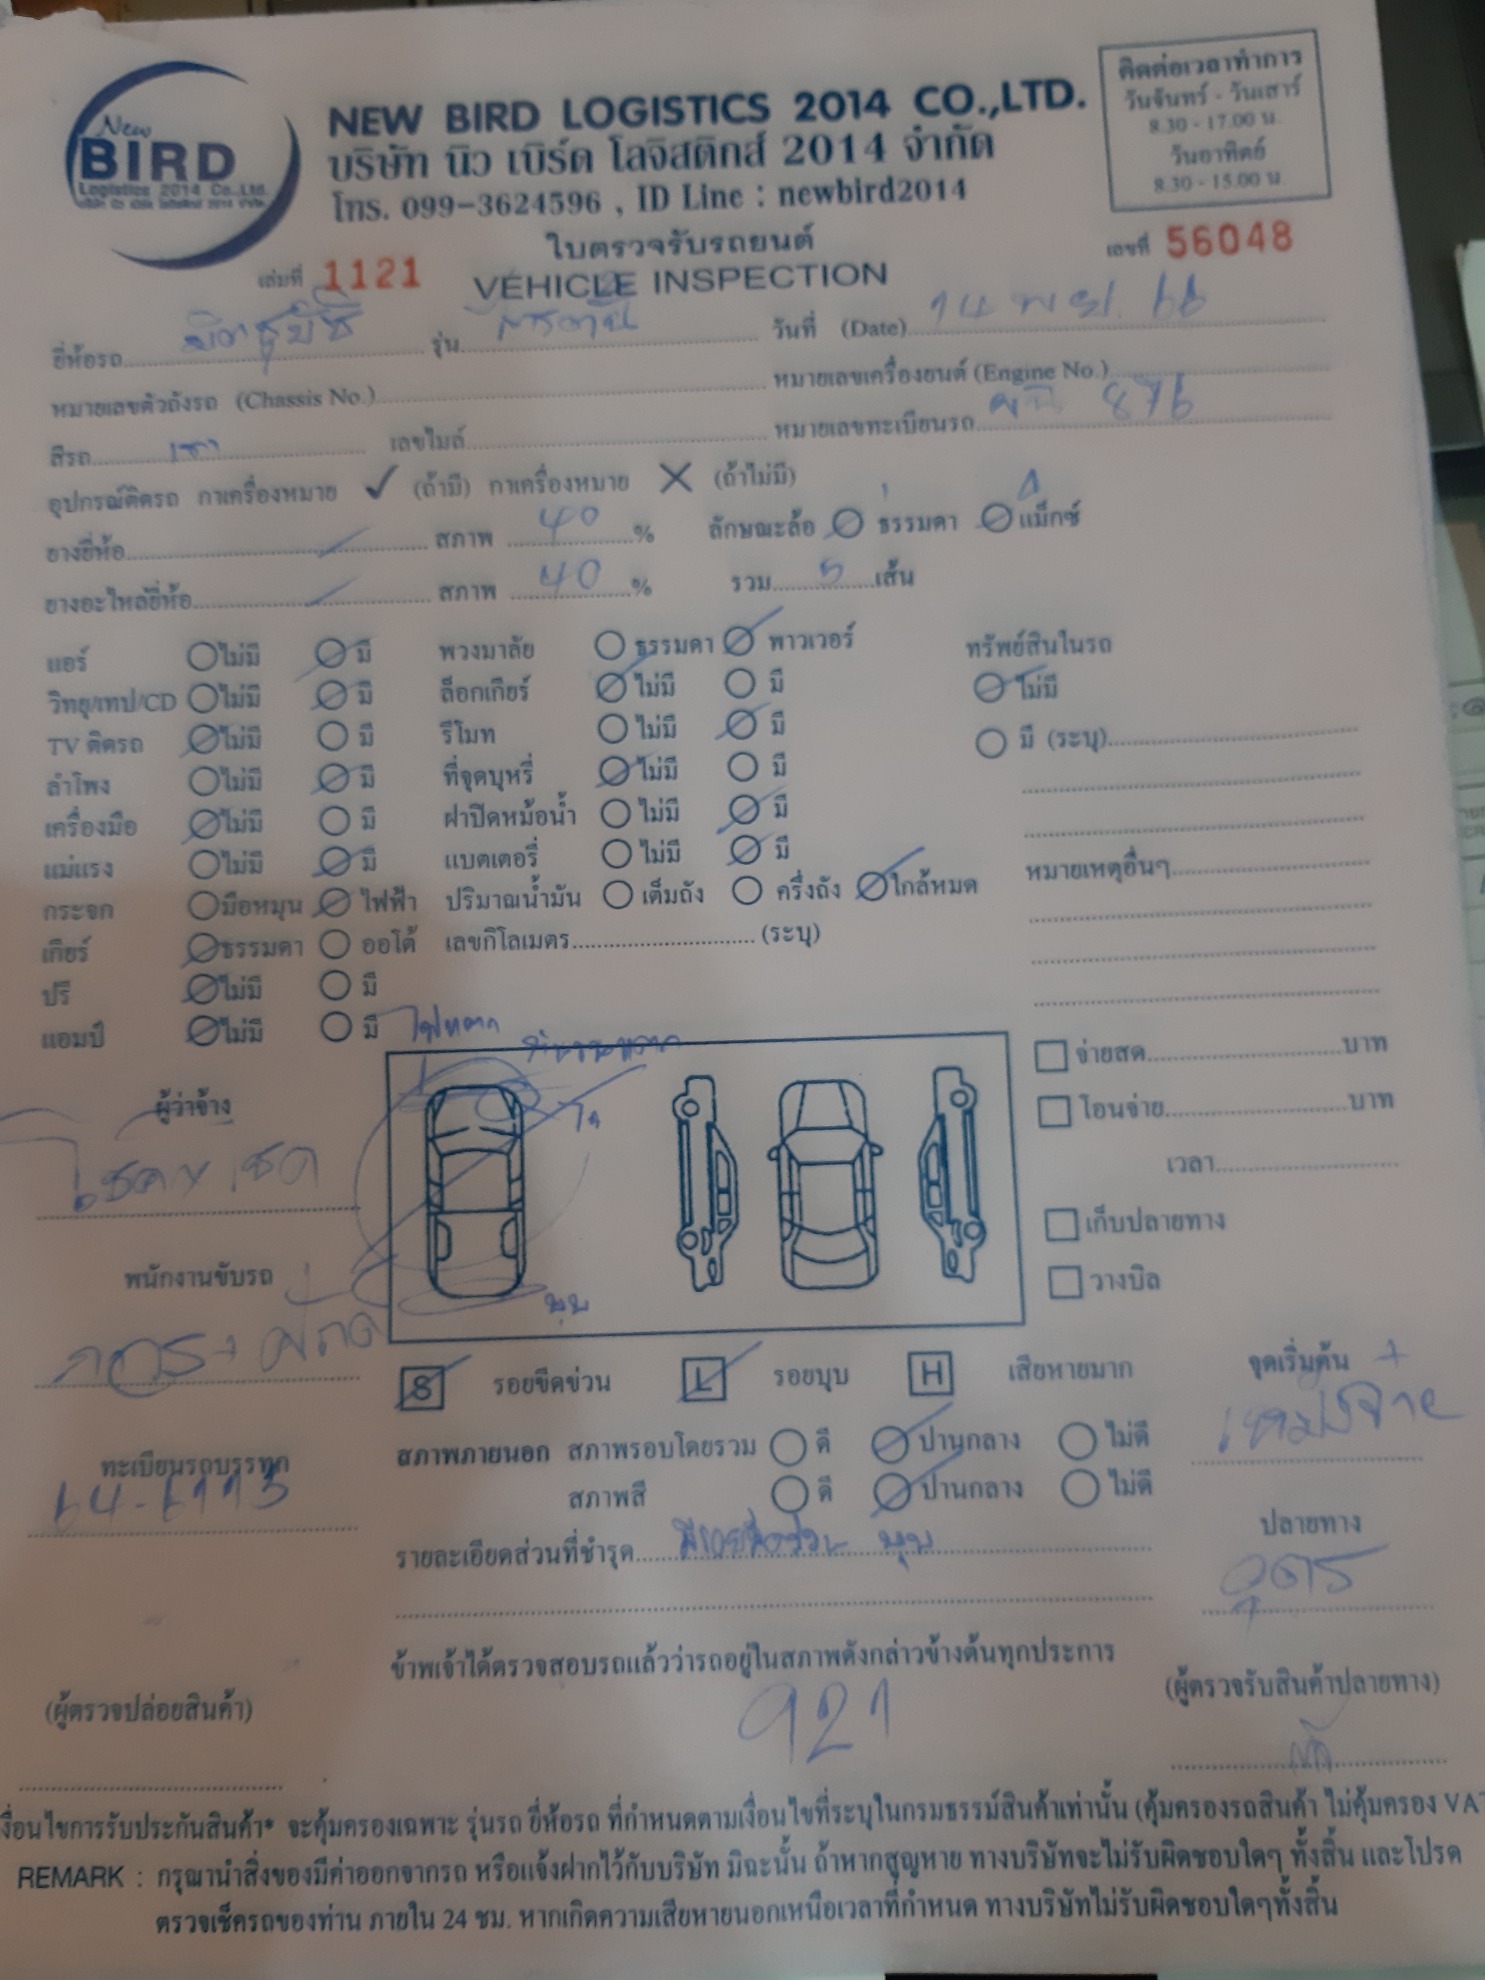 New
BIRD
Logistics 2014 Co.,Ltd.
NEW BIRD LOGISTICS 2014 CO.,LTD.
บริษัท นิว เบิร์ด โลจิสติกส์ 2014 จำกัด
โทร. 099-3624596 , ID Line : newbird2014
ติดต่อเวลาทำการ
วันจันทร์ - วันเสาร์
8.30 - 17.00 น.
วันอาทิตย์
8.30 - 15.00 น.
ใบตรวจรับรถยนต์
เล่มที่ 1121 VEHICLE INSPECTION เลขที่ 56048
ยี่ห้อรถ มิตซูบิชิ รุ่น วันที่ (Date) 14 พ.ย. 66
หมายเลขตัวถังรถ (Chassis No.) หมายเลขเครื่องยนต์ (Engine No.)
สีรถ เทา เลขไมล์ หมายเลขทะเบียนรถ 876
อุปกรณ์ติดรถ กาเครื่องหมาย ✓ (ถ้ามี) กาเครื่องหมาย ✕ (ถ้าไม่มี)
ยางยี่ห้อ สภาพ 40 % ลักษณะล้อ ธรรมดา แม็กซ์
ยางอะไหล่ยี่ห้อ สภาพ 40 % รวม 5 เส้น
แอร์ ไม่มี มี พวงมาลัย ธรรมดา พาวเวอร์ ทรัพย์สินในรถ
วิทยุ/เทป/CD ไม่มี มี ล็อกเกียร์ ไม่มี มี ไม่มี
TV ติดรถ ไม่มี มี รีโมท ไม่มี มี มี (ระบุ)
ลำโพง ไม่มี มี ที่จุดบุหรี่ ไม่มี มี
เครื่องมือ ไม่มี มี ฝาปิดหม้อน้ำ ไม่มี มี
แม่แรง ไม่มี มี แบตเตอรี่ ไม่มี มี หมายเหตุอื่นๆ
กระจก มือหมุน ไฟฟ้า ปริมาณน้ำมัน เต็มถัง ครึ่งถัง ใกล้หมด
เกียร์ ธรรมดา ออโต้ เลขกิโลเมตร (ระบุ)
ปรี ไม่มี มี
แอมป์ ไม่มี มี
จ่ายสด บาท
ผู้ว่าจ้าง
โอนจ่าย บาท
เวลา
เก็บปลายทาง
พนักงานขับรถ
วางบิล
บุบ
S รอยขีดข่วน L รอยบุบ H เสียหายมาก จุดเริ่มต้น
สภาพภายนอก สภาพรอบโดยรวม ดี ปานกลาง ไม่ดี
ทะเบียนรถบรรทุก
สภาพสี ดี ปานกลาง ไม่ดี
ปลายทาง
รายละเอียดส่วนที่ชำรุด บุบ
อุดร
ข้าพเจ้าได้ตรวจสอบรถแล้วว่ารถอยู่ในสภาพดังกล่าวข้างต้นทุกประการ
(ผู้ตรวจปล่อยสินค้า) (ผู้ตรวจรับสินค้าปลายทาง)
921
งื่อนไขการรับประกันสินค้า* จะคุ้มครองเฉพาะ รุ่นรถ ยี่ห้อรถ ที่กำหนดตามเงื่อนไขที่ระบุในกรมธรรม์สินค้าเท่านั้น (คุ้มครองรถสินค้า ไม่คุ้มครอง VA
REMARK : กรุณานำสิ่งของมีค่าออกจากรถ หรือแจ้งฝากไว้กับบริษัท มิฉะนั้น ถ้าหากสูญหาย ทางบริษัทจะไม่รับผิดชอบใดๆ ทั้งสิ้น และโปรด
ตรวจเช็ครถของท่าน ภายใน 24 ชม. หากเกิดความเสียหายนอกเหนือเวลาที่กำหนด ทางบริษัทไม่รับผิดชอบใดๆทั้งสิ้น